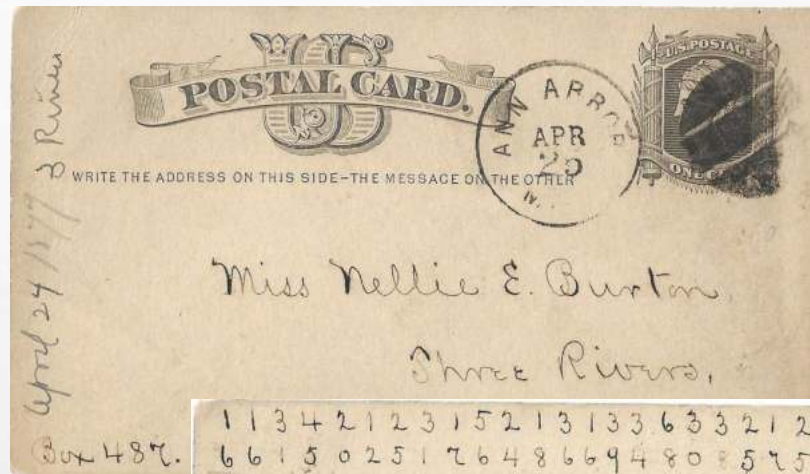 US
POSTAL CARD.
U.S. POSTAGE
ONE
ANN ARBOR
APR
25
WRITE THE ADDRESS ON THIS SIDE-THE MESSAGE ON THE OTHER
April 24 1877 3 Rivers
Miss Nellie E. Burton,
Three Rivers,
Box 487.
1 1 3 4 2 1 2 3 1 5 2 1 3 1 3 3 6 3 3 2 1 2
6 6 1 5 0 2 5 1 7 6 4 8 6 6 9 4 8 0 5 7 5